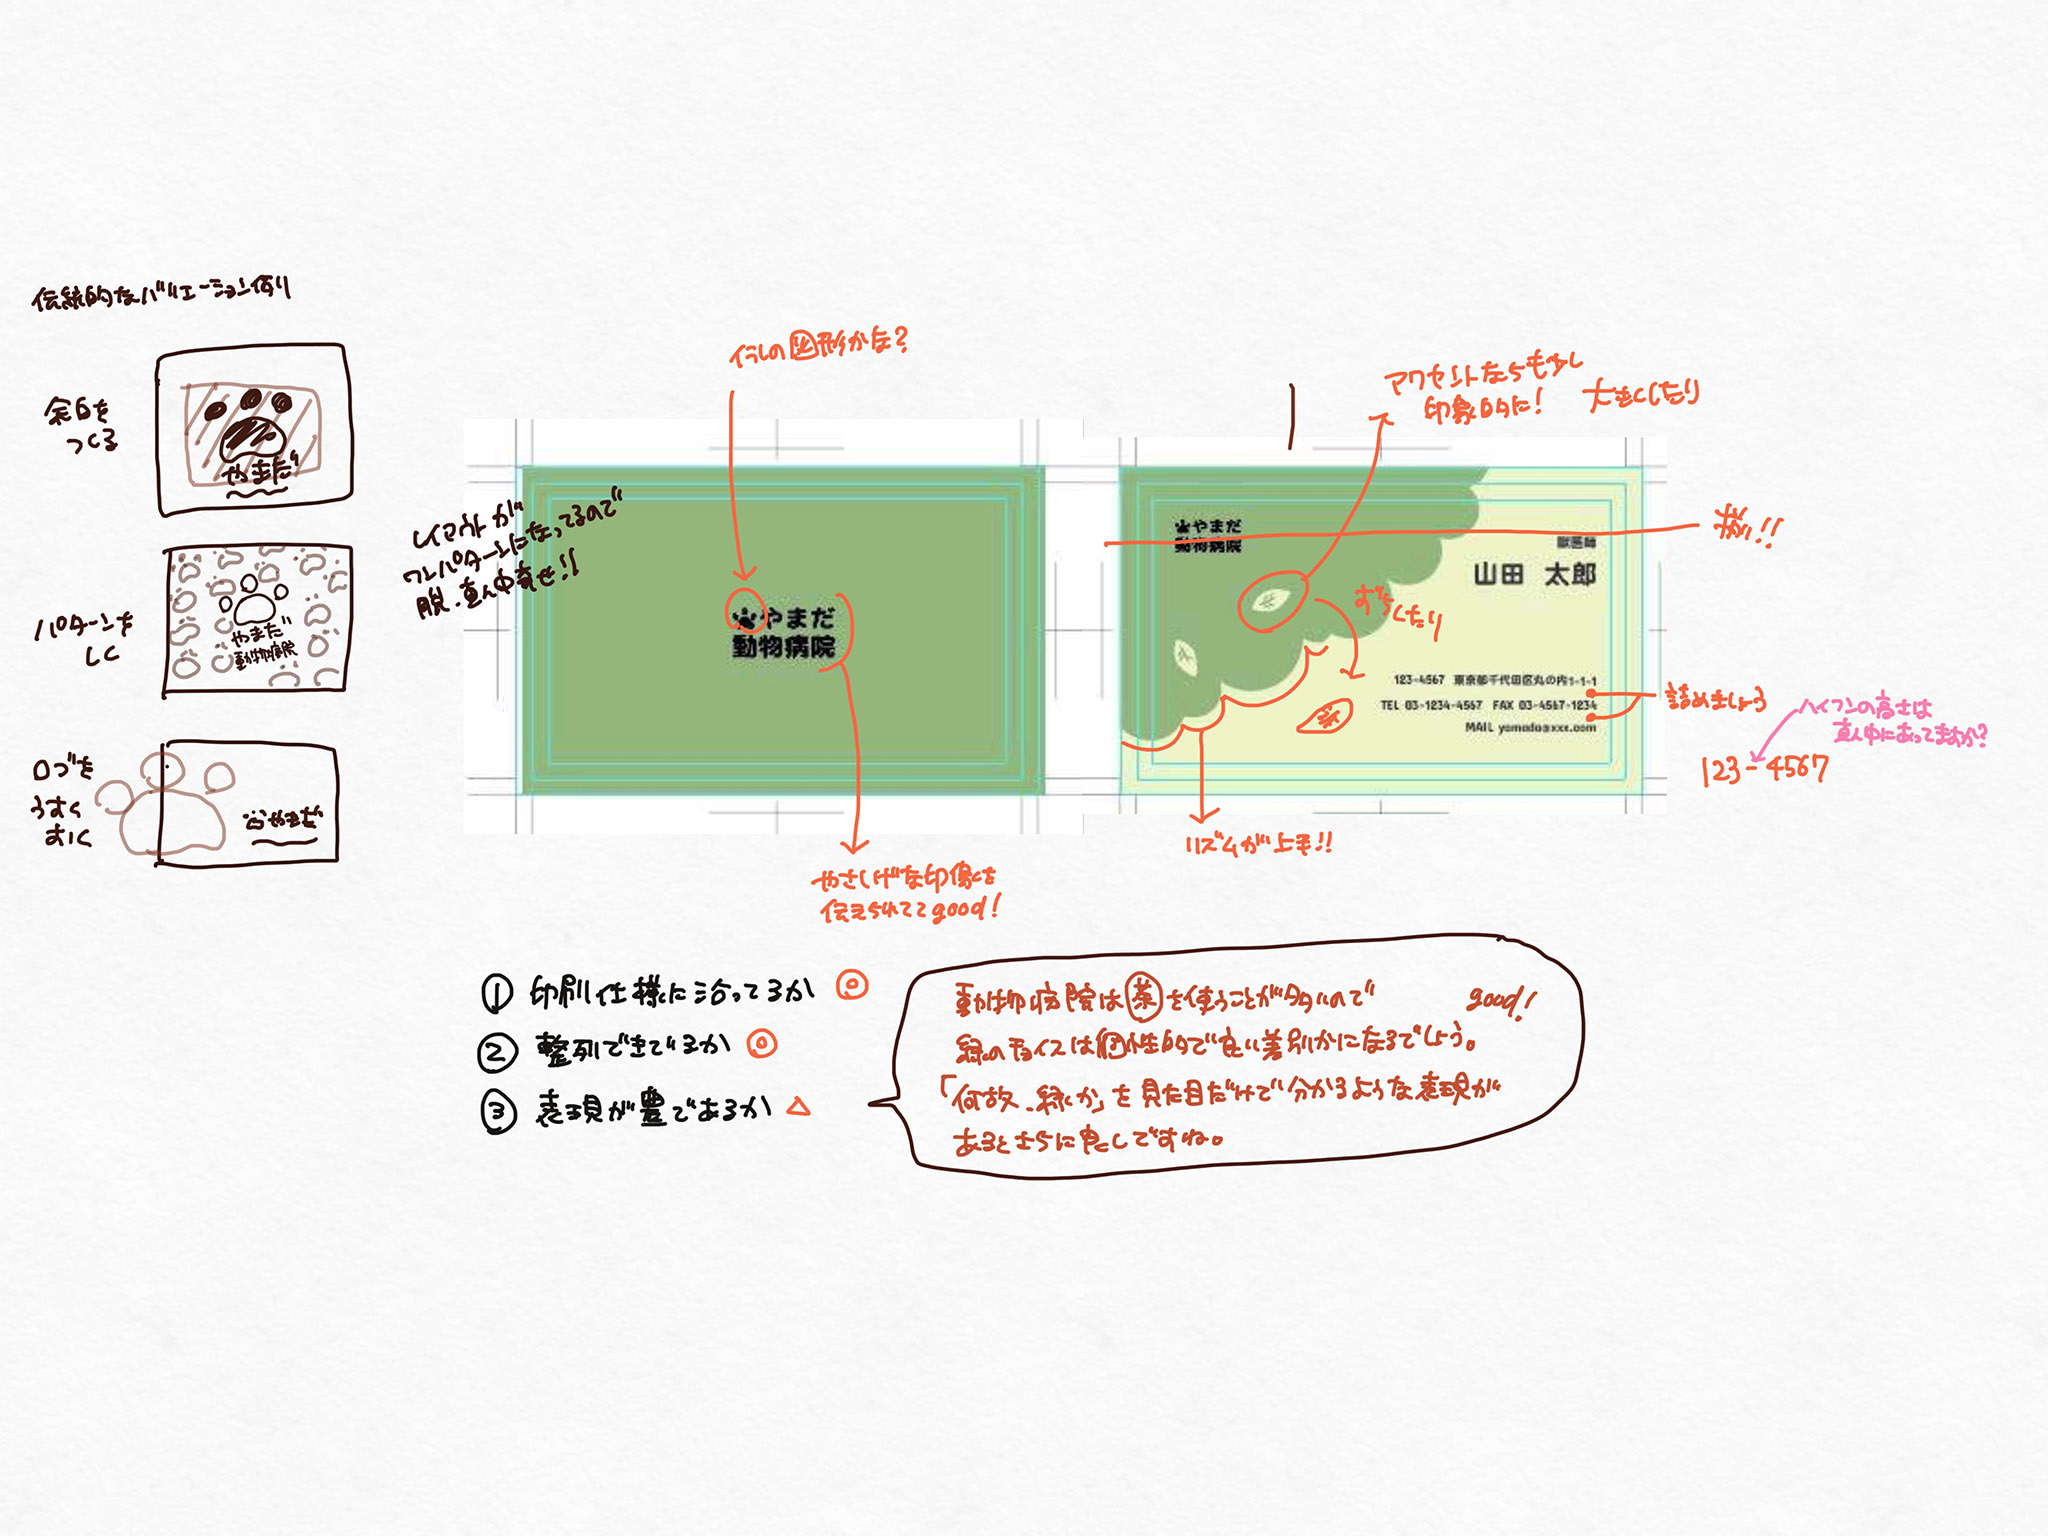 伝統的なバリエーション何り
余白を
つくる
やまだ
パターンを
しく
やまだ
動物病院
ロゴを
うすく
おく
やまだ
レイアウトが
ワンパターンになってるので
脱.真ん中寄せ!!
図形かな?
やまだ
動物病院
やさしげな印像を
伝えられてて good!
アクセントならも少し
印象的に!
大きくしたり
やまだ
動物病院
獣医師
山田 太郎
おちてたり
123-4567 東京都千代田区丸の内1-1-1
TEL 03-1234-4567 FAX 03-4567-1234
MAIL yamada@xxx.com
揃い!!
詰めましょう
ハイフンの高さは
真ん中にあってますか?
123-4567
リズムが上手!!
① 印刷仕様に沿ってるか ◎
② 整列できているか ◎
③ 表現が豊であるか △
動物病院は茶を使うことが多いので good!
緑のチョイスは個性的で良い差別かになるでしょう。
「何故.緑か」を見た目だけで分かるような表現が
あるとさらに良しですね。